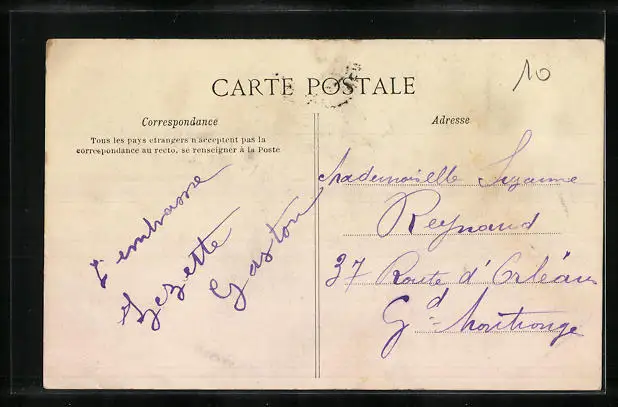 10
CARTE POSTALE
Correspondance
Tous les pays etrangers n'acceptent pas la
correspondance au recto, se renseigner à la Poste
t'embrasse
Zezette
Gaston
Adresse
Mademoiselle Suzanne
Reynaud
37 Route d'Orléans
Gd. Montrouge